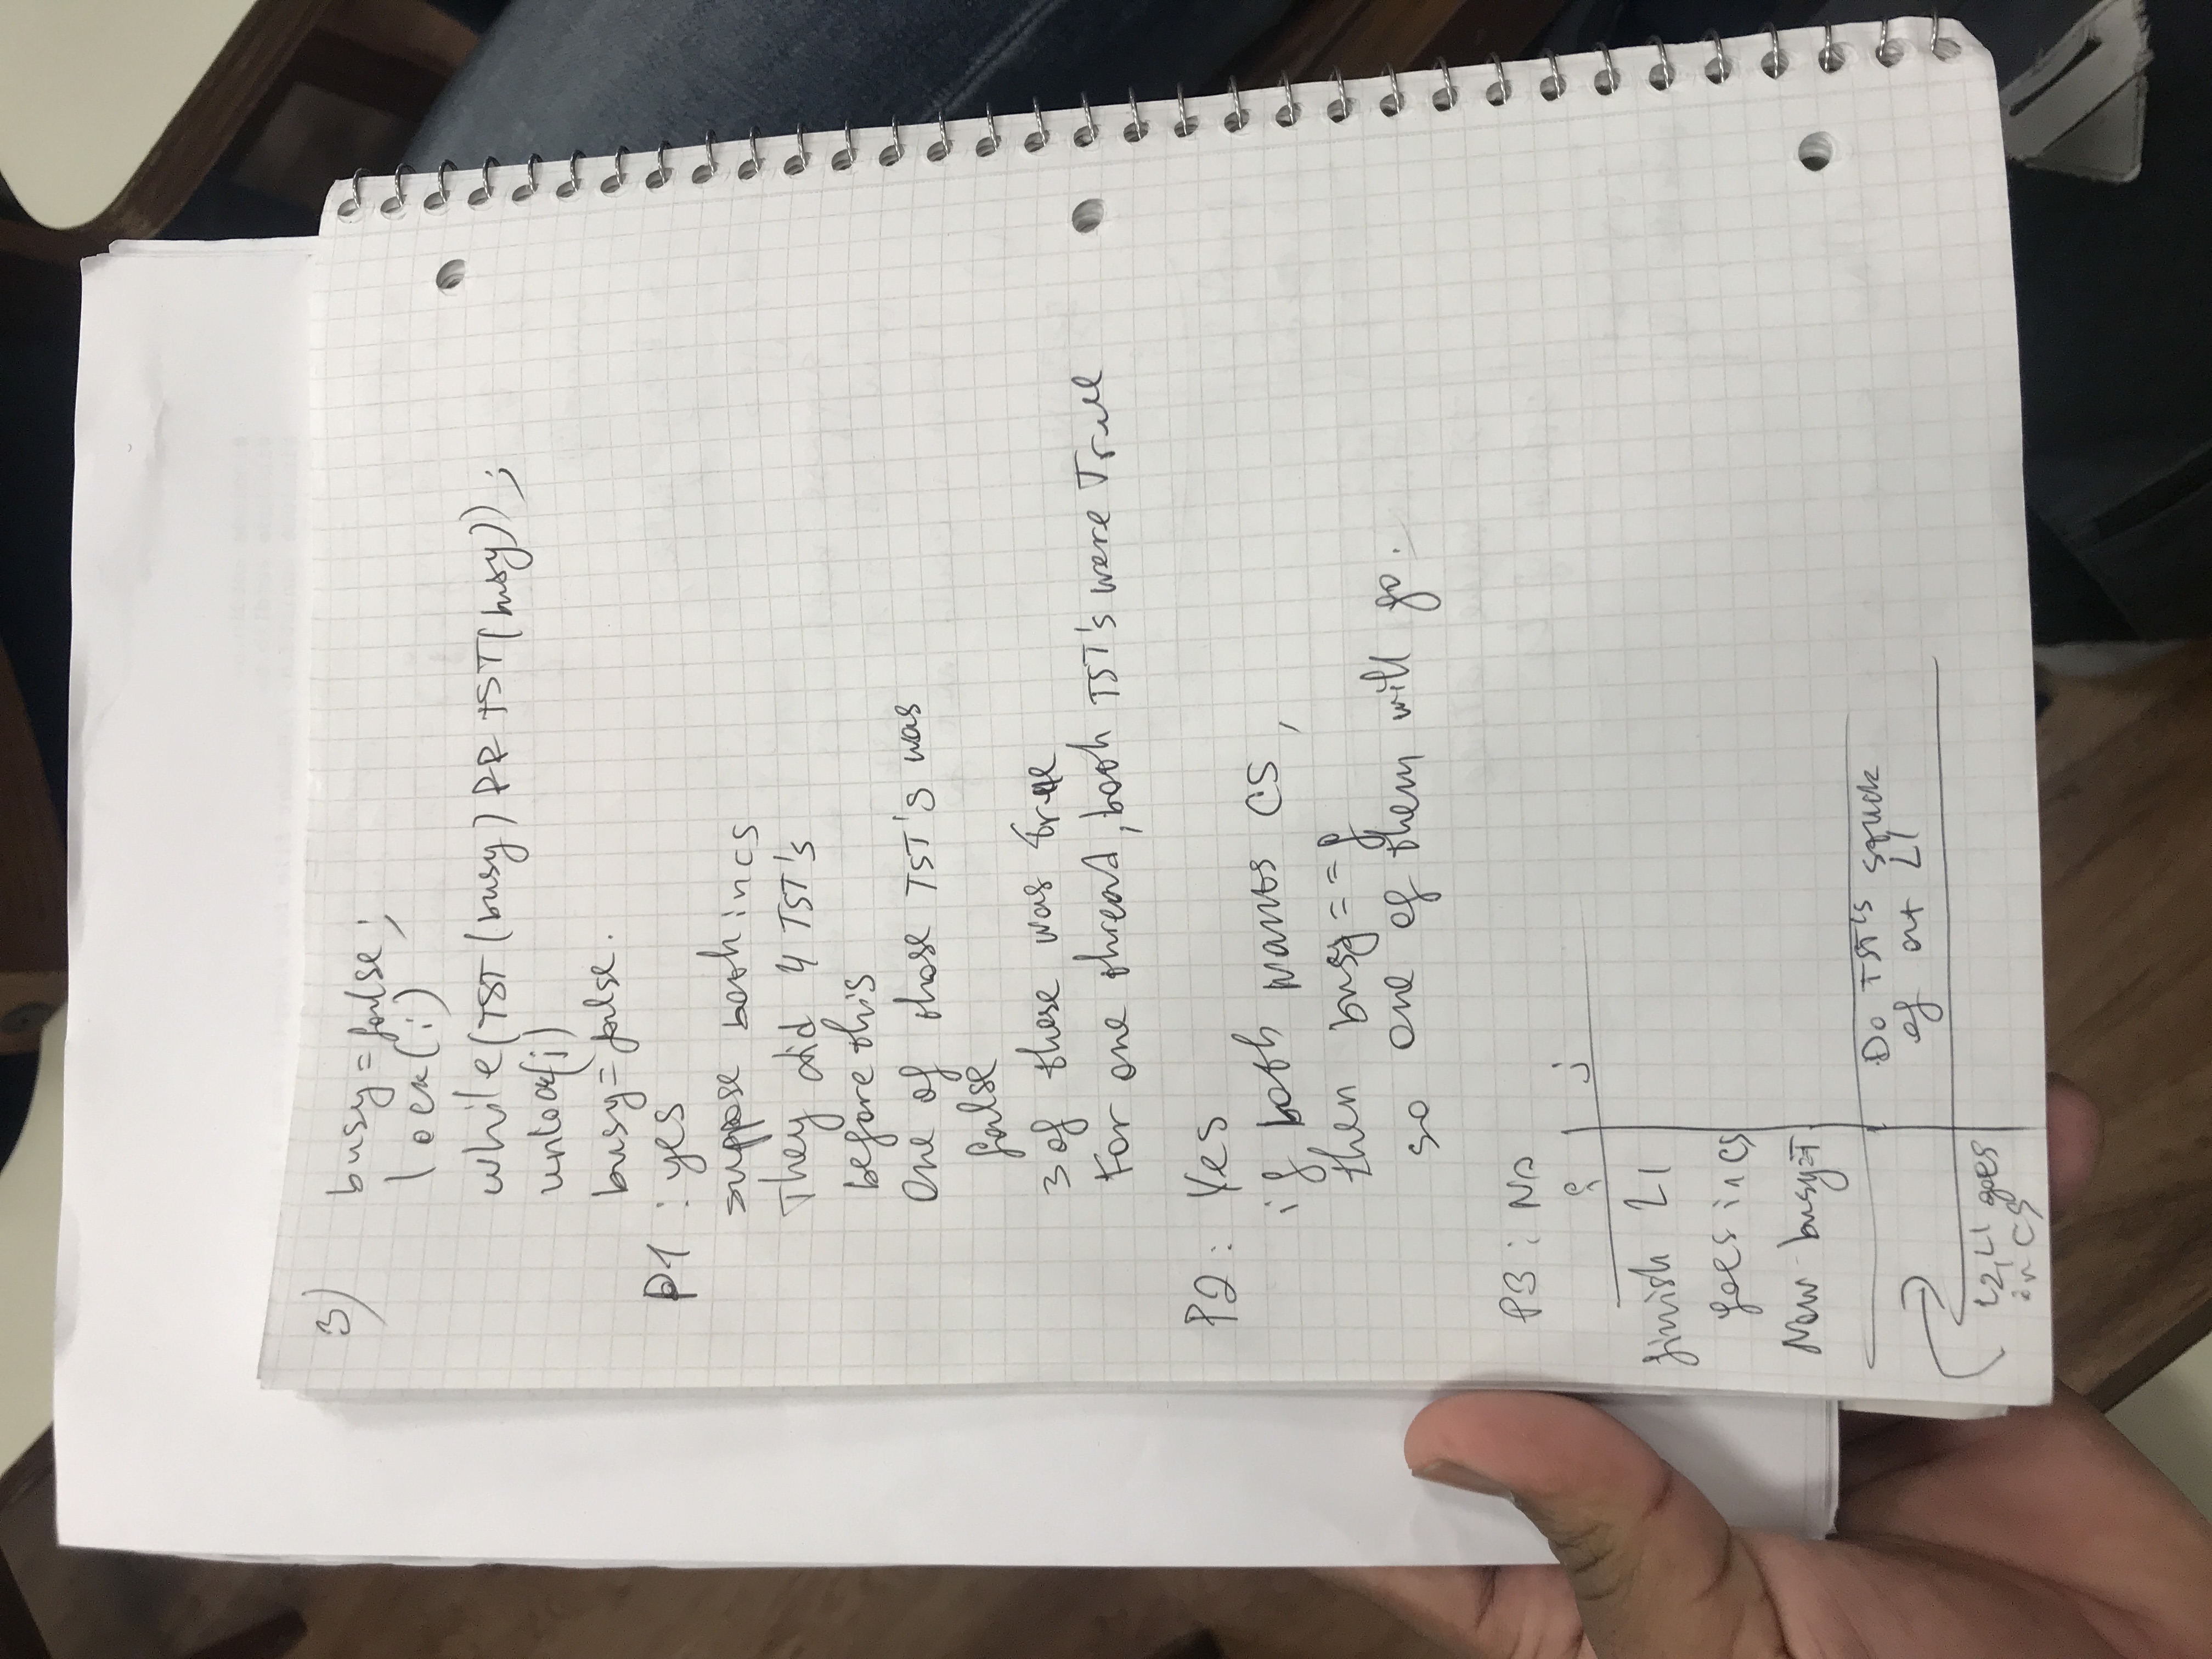 3)
busy=false;
lock(i)
while(TST(busy) RR TST(busy));
unlock(i)
busy=false.
P1 : yes
suppose both in cs
They did 4 TST's
before this
One of those TST's was
false
3 of these was true
For one thread, both TST's were True
P2: Yes
if both wants CS,
then busy==f
so one of them will go.
P3: No
i j
finish L1
goes in CS
Now busy=T
Do TST's stuck
of at L1
L2, L1 goes
in CS